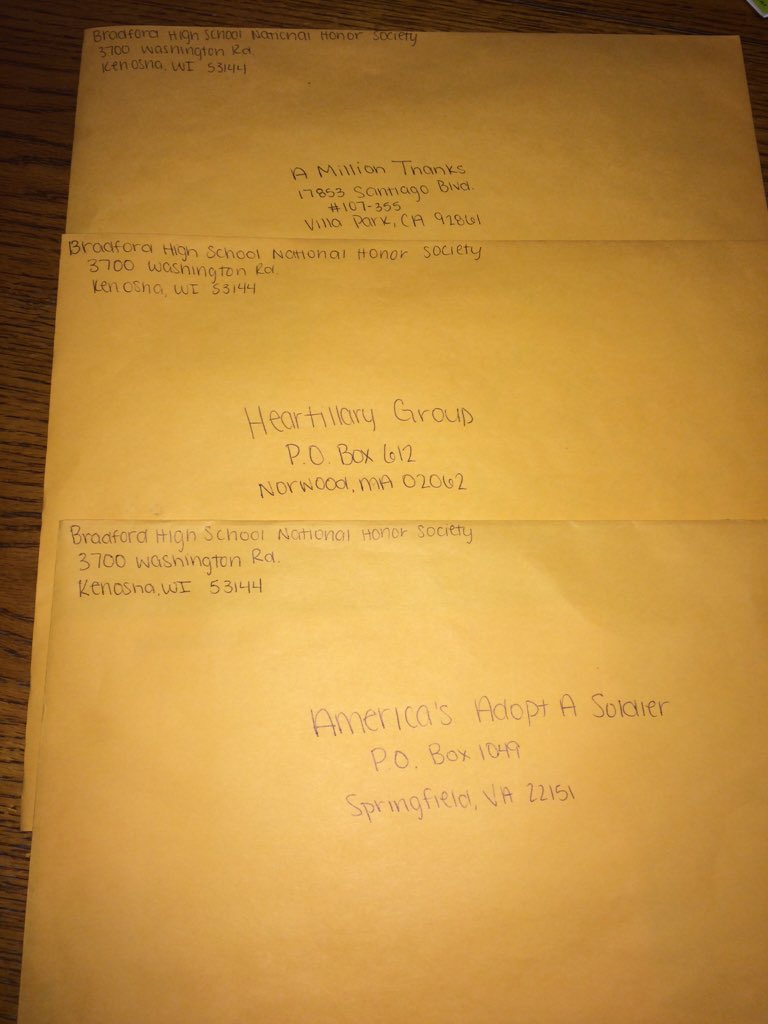 Bradford High School National Honor Society
3700 Washington Rd.
Kenosha, WI 53144
A Million Thanks
17853 Santiago Blvd.
#107-355
Villa Park, CA 92861
Bradford High School National Honor Society
3700 Washington Rd.
Kenosha, WI 53144
Heartillary Group
P.O. Box 612
Norwood, MA 02062
Bradford High School National Honor Society
3700 Washington Rd.
Kenosha, WI 53144
America's Adopt A Soldier
P.O. Box 1049
Springfield, VA 22151